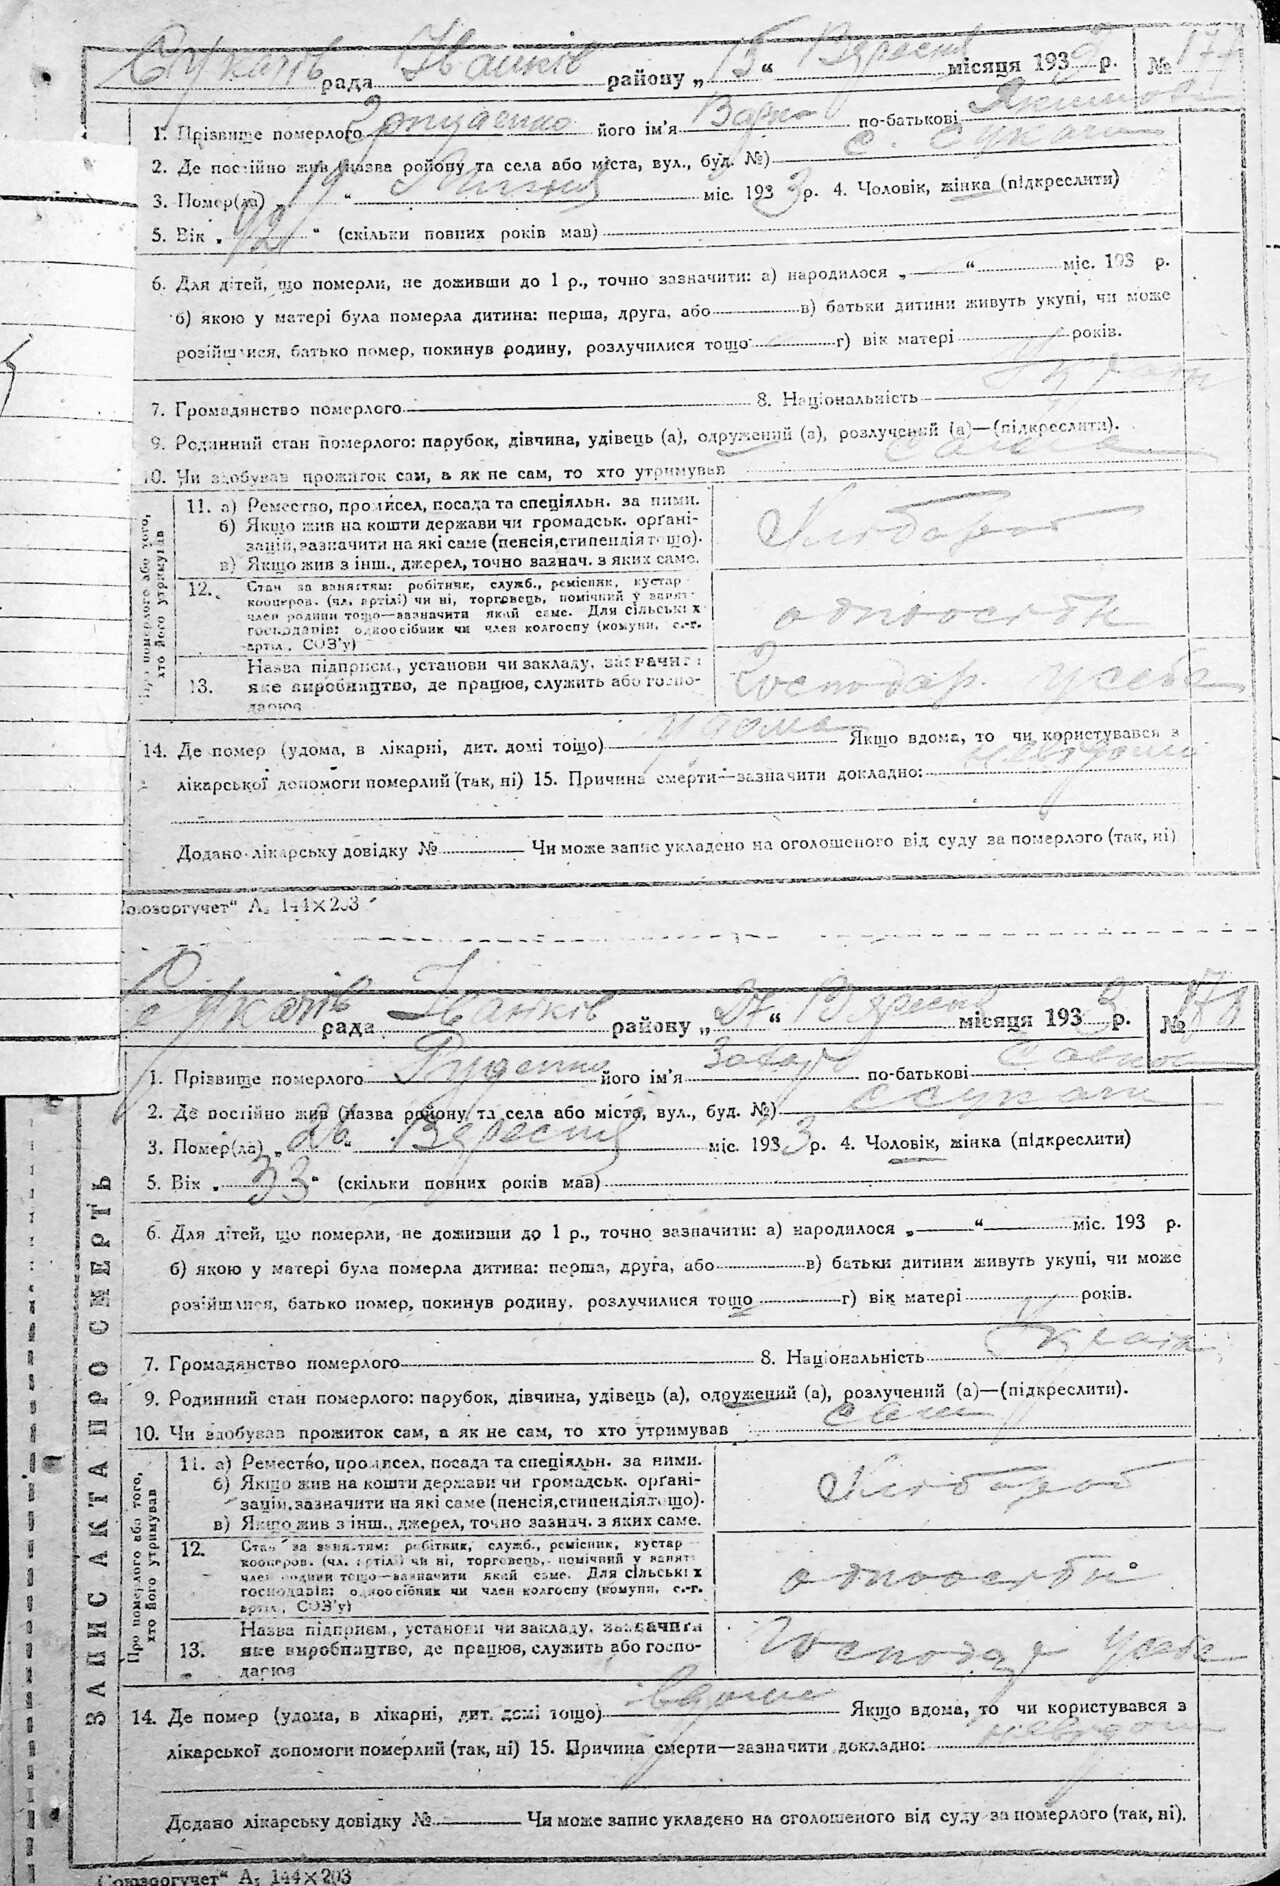 Сукачів рада Іванків району „15“ Вересня місяця 1933 р. № 177
1. Прізвище померлого його ім'я по-батькові
2. Де постійно жив (назва ройону та села або міста, вул., буд. №) с. Сукачі
3. Помер(ла) „19“ міс. 1933 р. 4. Чоловік, жінка (підкреслити)
5. Вік „ “ (скільки повних років мав)
6. Для дітей, що померли, не доживши до 1 р., точно зазначити: а) народилося „ “ міс. 193 р.
б) якою у матері була померла дитина: перша, друга, або в) батьки дитини живуть укупі, чи може
розійшлися, батько помер, покинув родину, розлучилися тощо г) вік матері років.
7. Громадянство померлого 8. Національність Україн
9. Родинний стан померлого: парубок, дівчина, удівець (а), одружений (а), розлучений (а)—(підкреслити).
10. Чи здобував прожиток сам, а як не сам, то хто утримував сама
Про померлого або того,
хто його утримував
11. а) Ремество, промисел, посада та спеціяльн. за ними.
б) Якщо жив на кошти держави чи громадськ. орґані-
зацій, зазначити на які саме (пенсія, стипендія тощо).
в) Якщо жив з інш., джерел, точно зазнач. з яких саме.
Хлібороб
12. Стан за заняттям: робітник, служб., ремісник, кустар
кооперов. (чл. артілі) чи ні, торговець, помічний у занят.
член родини тощо—зазначити який саме. Для сільських
господарів: одноосібник чи член колгоспу (комуни, с.-г.
артіл., СОЗ'у)
одноосібн
13. Назва підприєм., установи чи закладу, зазначити
яке виробництво, де працює, служить або госпо-
дарює
Господар. у себе
14. Де помер (удома, в лікарні, дит. домі тощо) удома Якщо вдома, то чи користувався з
лікарської допомоги померлий (так, ні) 15. Причина смерти—зазначити докладно: невідома
Додано лікарську довідку № Чи може запис укладено на оголошеного від суду за померлого (так, ні)
Союзоргучет“ А5 144×203
Сукачів рада Іванків району „27“ Вересня місяця 1933 р. № 178
1. Прізвище померлого Руденко його ім'я Захар по-батькові
2. Де постійно жив (назва ройону та села або міста, вул., буд. №) с Сукачі
3. Помер(ла) „26“ Вересня міс. 1933 р. 4. Чоловік, жінка (підкреслити)
5. Вік „33“ (скільки повних років мав)
6. Для дітей, що померли, не доживши до 1 р., точно зазначити: а) народилося „ “ міс. 193 р.
б) якою у матері була померла дитина: перша, друга, або в) батьки дитини живуть укупі, чи може
розійшлися, батько помер, покинув родину, розлучилися тощо г) вік матері років.
7. Громадянство померлого 8. Національність Україн
9. Родинний стан померлого: парубок, дівчина, удівець (а), одружений (а), розлучений (а)—(підкреслити).
10. Чи здобував прожиток сам, а як не сам, то хто утримував сам
ЗАПИС АКТА ПРО СМЕРТЬ
Про померлого або того,
хто його утримував
11. а) Ремество, промисел, посада та спеціяльн. за ними.
б) Якщо жив на кошти держави чи громадськ. орґані-
зацій, зазначити на які саме (пенсія, стипендія тощо).
в) Якщо жив з інш., джерел, точно зазнач. з яких саме.
Хлібороб
12. Стан за заняттям: робітник, служб., ремісник, кустар
кооперов. (чл. артілі) чи ні, торговець, помічний у занят.
член родини тощо—зазначити який саме. Для сільських
господарів: одноосібник чи член колгоспу (комуни, с.-г.
артіл., СОЗ'у)
одноосібн
13. Назва підприєм., установи чи закладу, зазначити
яке виробництво, де працює, служить або госпо-
дарює
Господар у себе
14. Де помер (удома, в лікарні, дит. домі тощо) вдома Якщо вдома, то чи користувався з
лікарської допомоги померлий (так, ні) 15. Причина смерти—зазначити докладно: невідома
Додано лікарську довідку № Чи може запис укладено на оголошеного від суду за померлого (так, ні).
Союзоргучет“ А5 144×203